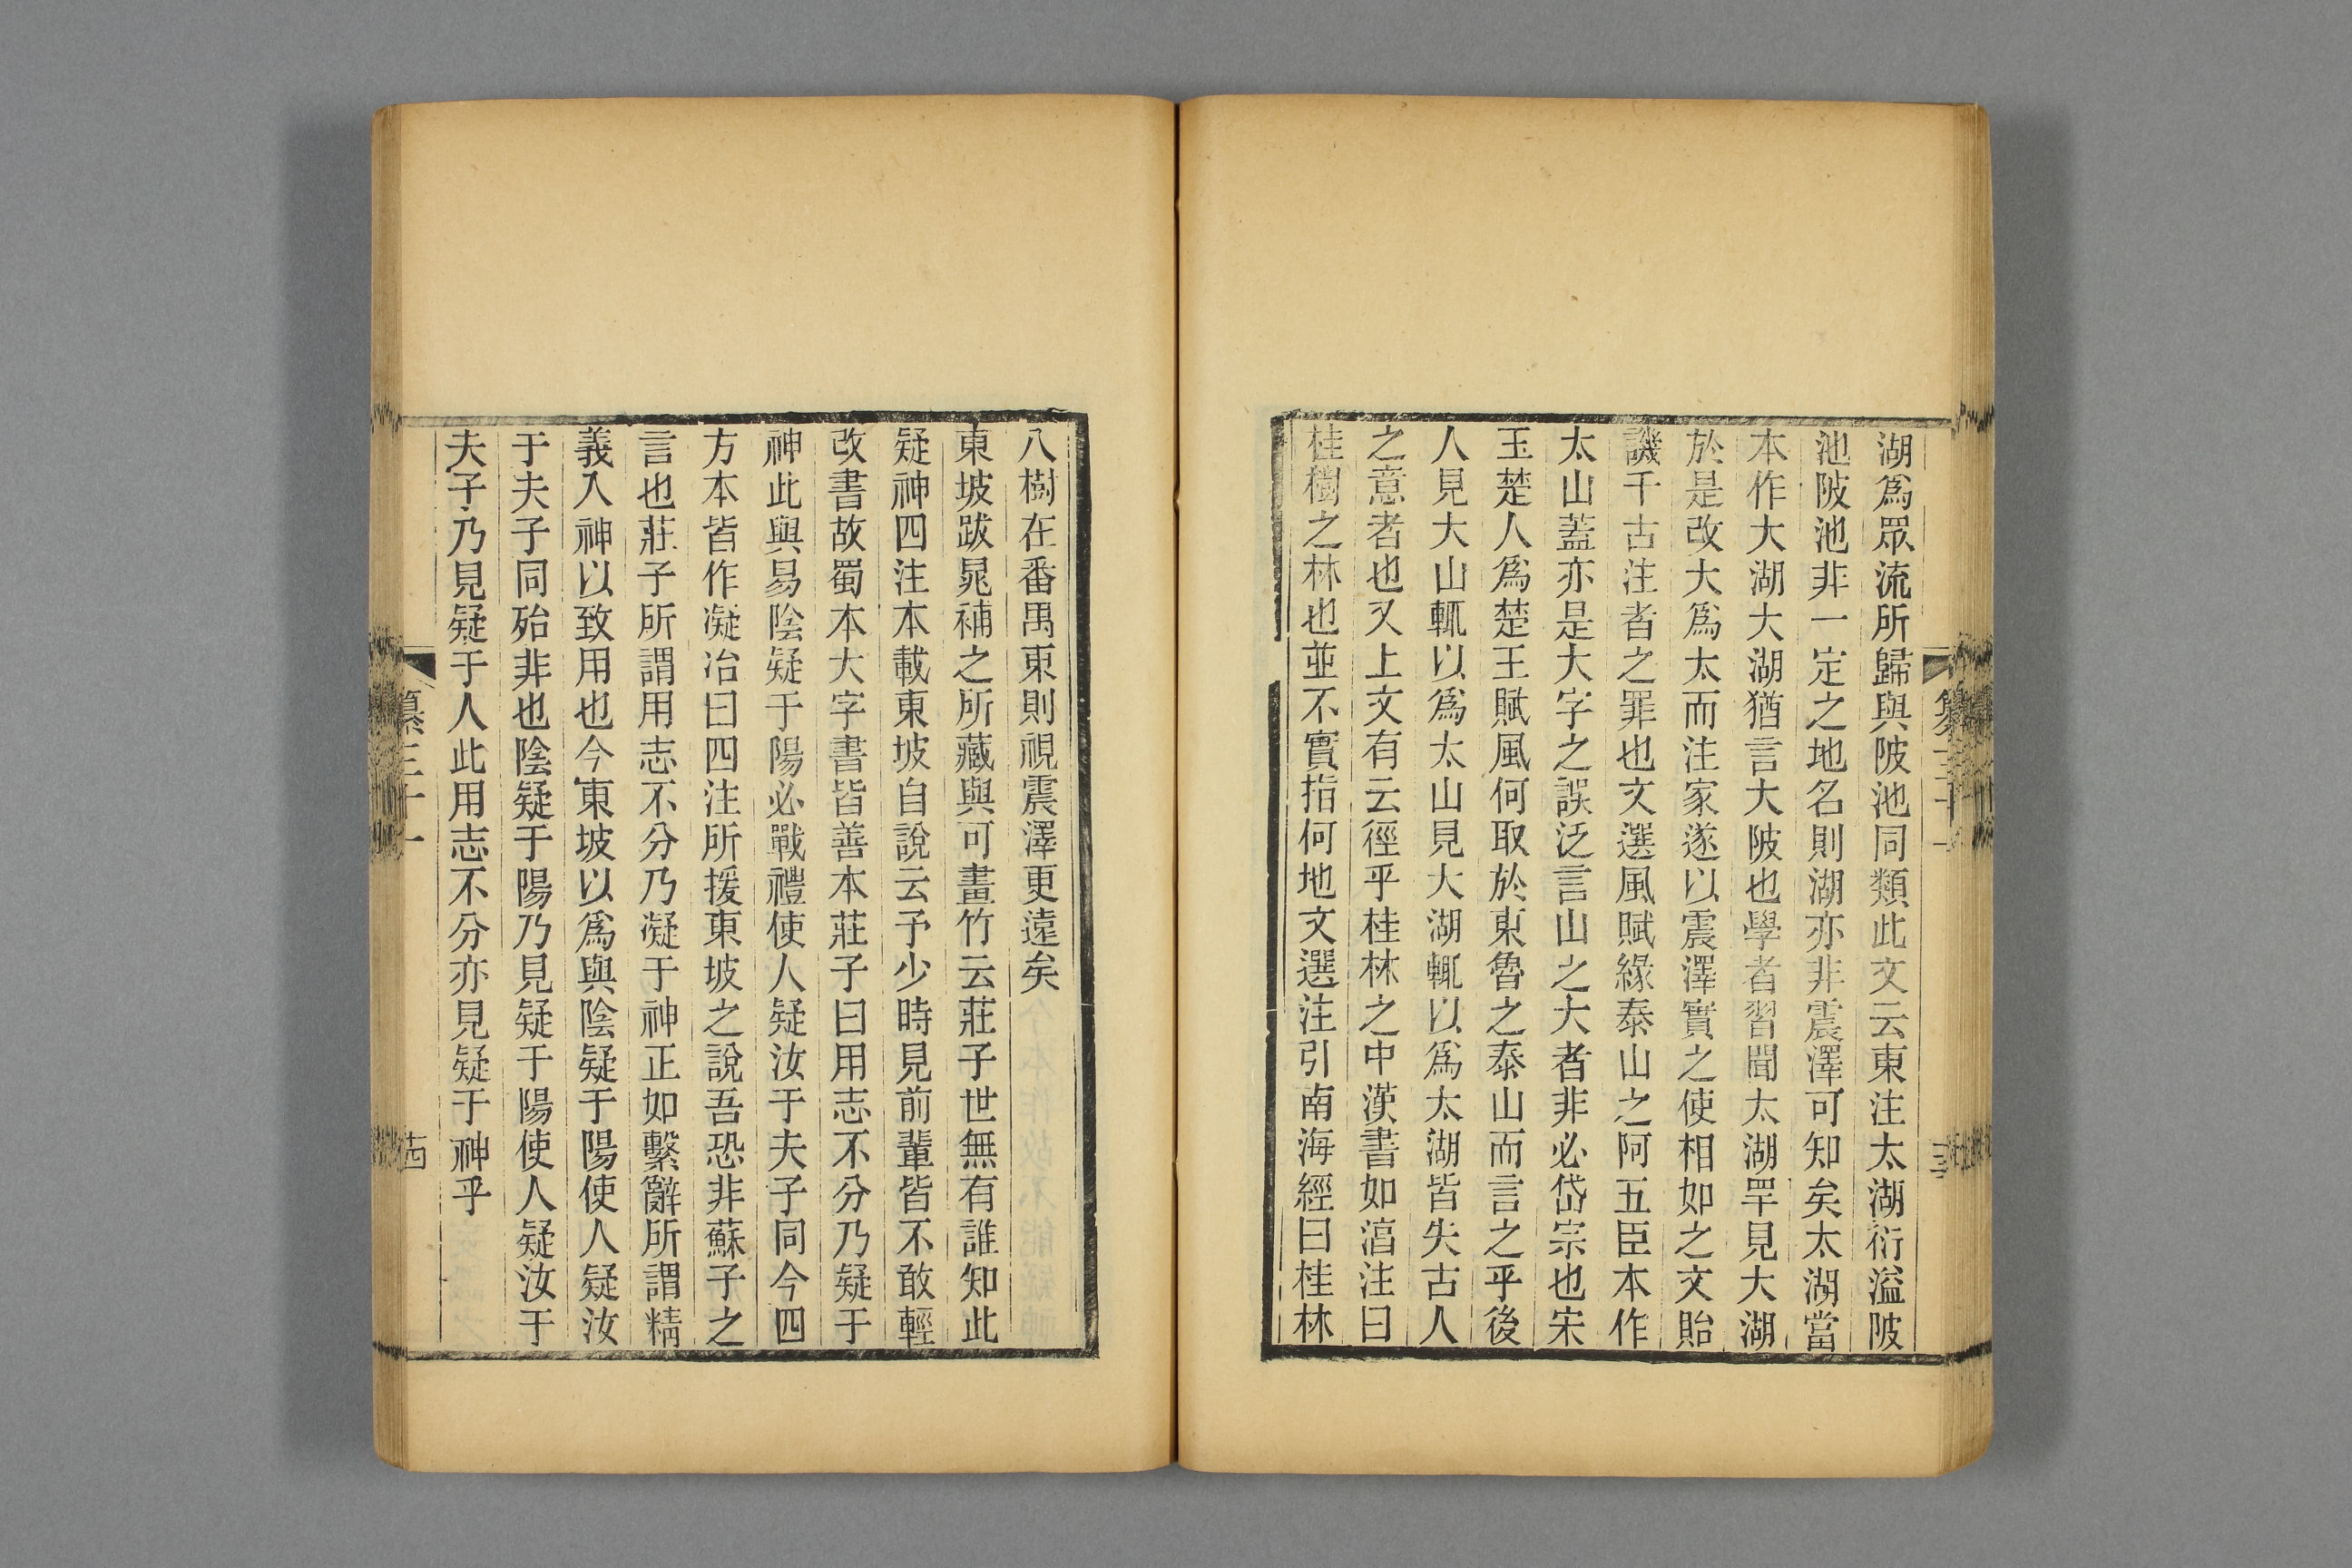 湖爲眾流所歸與陂池同類此文云東注太湖衍溢陂
池陂池非一定之地名則湖亦非震澤可知矣太湖當
本作大湖大湖猶言大陂也學者習聞太湖罕見大湖
於是改大爲太而注家遂以震澤實之使相如之文貽
譏千古注者之罪也文選風賦緣泰山之阿五臣本作
太山蓋亦是大字之誤泛言山之大者非必岱宗也宋
玉楚人爲楚王賦風何取於東魯之泰山而言之乎後
人見大山輒以爲太山見大湖輒以爲太湖皆失古人
之意者也又上文有云徑乎桂林之中漢書如湻注曰
桂樹之林也並不實指何地文選注引南海經曰桂林
八樹在番禺東則視震澤更遠矣
東坡跋晁補之所藏與可畫竹云莊子世無有誰知此
疑神四注本載東坡自說云予少時見前輩皆不敢輕
改書故蜀本大字書皆善本莊子曰用志不分乃疑于
神此與易陰疑于陽必戰禮使人疑汝于夫子同今四
方本皆作凝冶曰四注所援東坡之說吾恐非蘇子之
言也莊子所謂用志不分乃凝于神正如繫辭所謂精
義入神以致用也今東坡以爲與陰疑于陽使人疑汝
于夫子同殆非也陰疑于陽乃見疑于陽使人疑汝于
夫子乃見疑于人此用志不分亦見疑于神乎
纂三十一
古